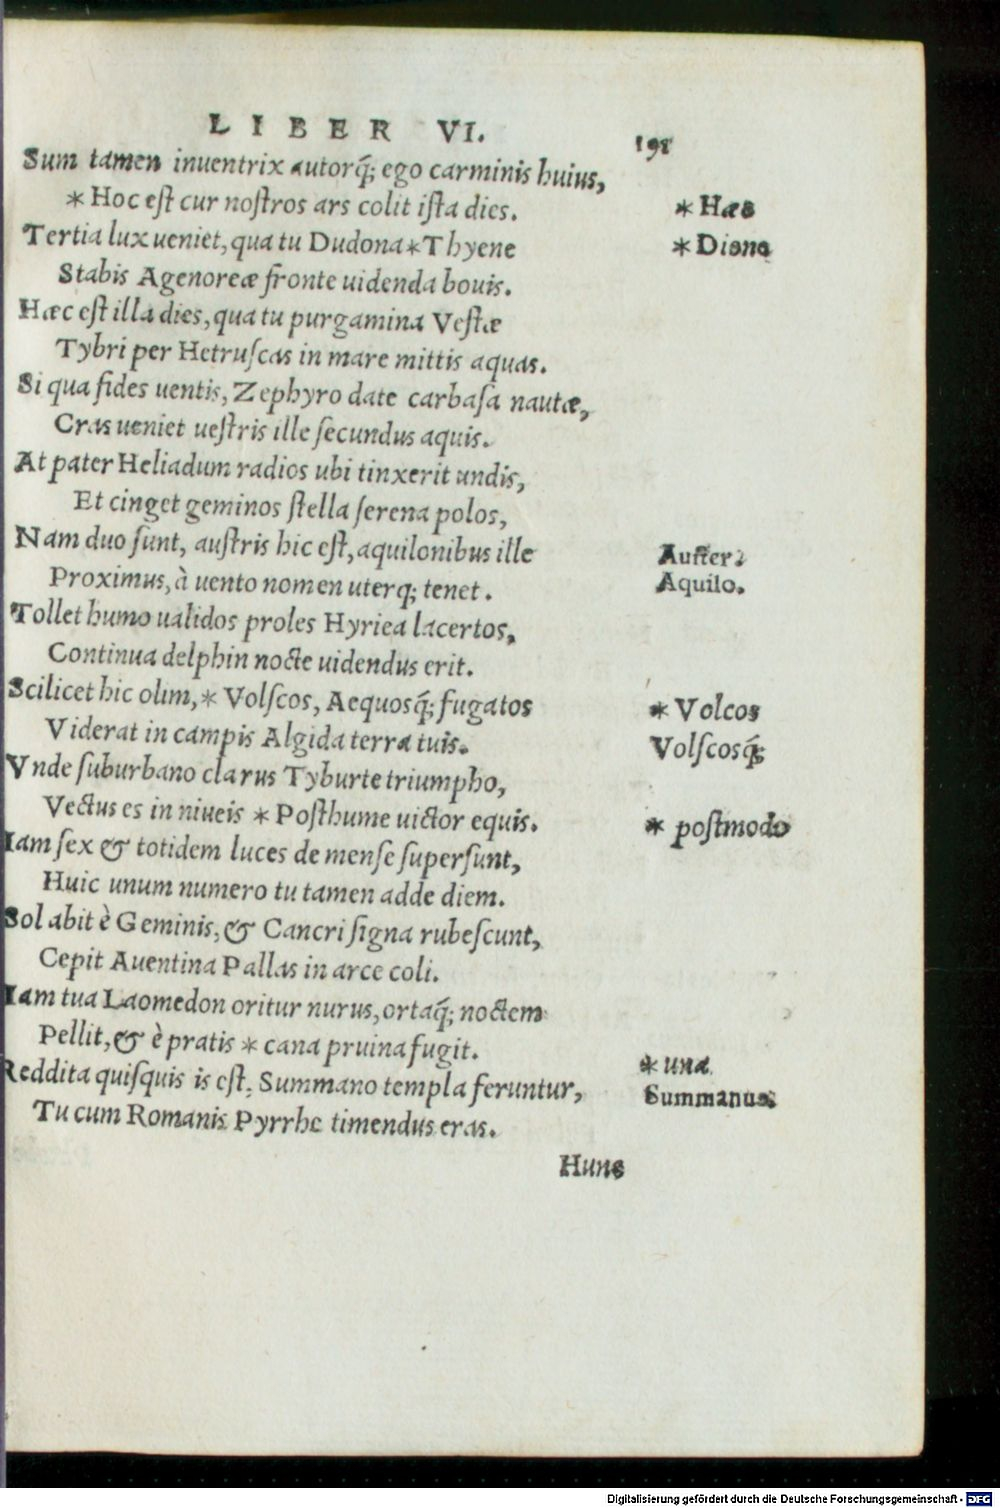 LIBER VI. 191
Sum tamen inuentrix autorq́; ego carminis huius,
* Hoc est cur nostros ars colit ista dies. * Hæc
Tertia lux ueniet, qua tu Dudona * Thyene * Diona
Stabis Agenoreæ fronte uidenda bouis.
Hæc est illa dies, qua tu purgamina Vestæ
Tybri per Hetruscas in mare mittis aquas.
Si qua fides uentis, Zephyro date carbasa nautæ,
Cras ueniet uestris ille secundus aquis.
At pater Heliadum radios ubi tinxerit undis,
Et cinget geminos stella serena polos,
Nam duo sunt, austris hic est, aquilonibus ille Auster.
Proximus, à uento nomen uterq; tenet. Aquilo.
Tollet humo ualidos proles Hyriea lacertos,
Continua delphin nocte uidendus erit.
Scilicet hic olim, * Volscos, Aequosq́; fugatos * Volcos
Viderat in campis Algida terra tuis. Volscosq́;
Vnde suburbano clarus Tyburte triumpho,
Vectus es in niueis * Posthume uictor equis. * postmodo
Iam sex & totidem luces de mense supersunt,
Huic unum numero tu tamen adde diem.
Sol abit è Geminis, & Cancri signa rubescunt,
Cepit Auentina Pallas in arce coli.
Iam tua Laomedon oritur nurus, ortaq́; noctem
Pellit, & è pratis * cana pruina fugit. * una
Reddita quisquis is est, Summano templa feruntur, Summanus.
Tu cum Romanis Pyrrhe timendus eras.
Hunc
Digitalisierung gefördert durch die Deutsche Forschungsgemeinschaft - DFG